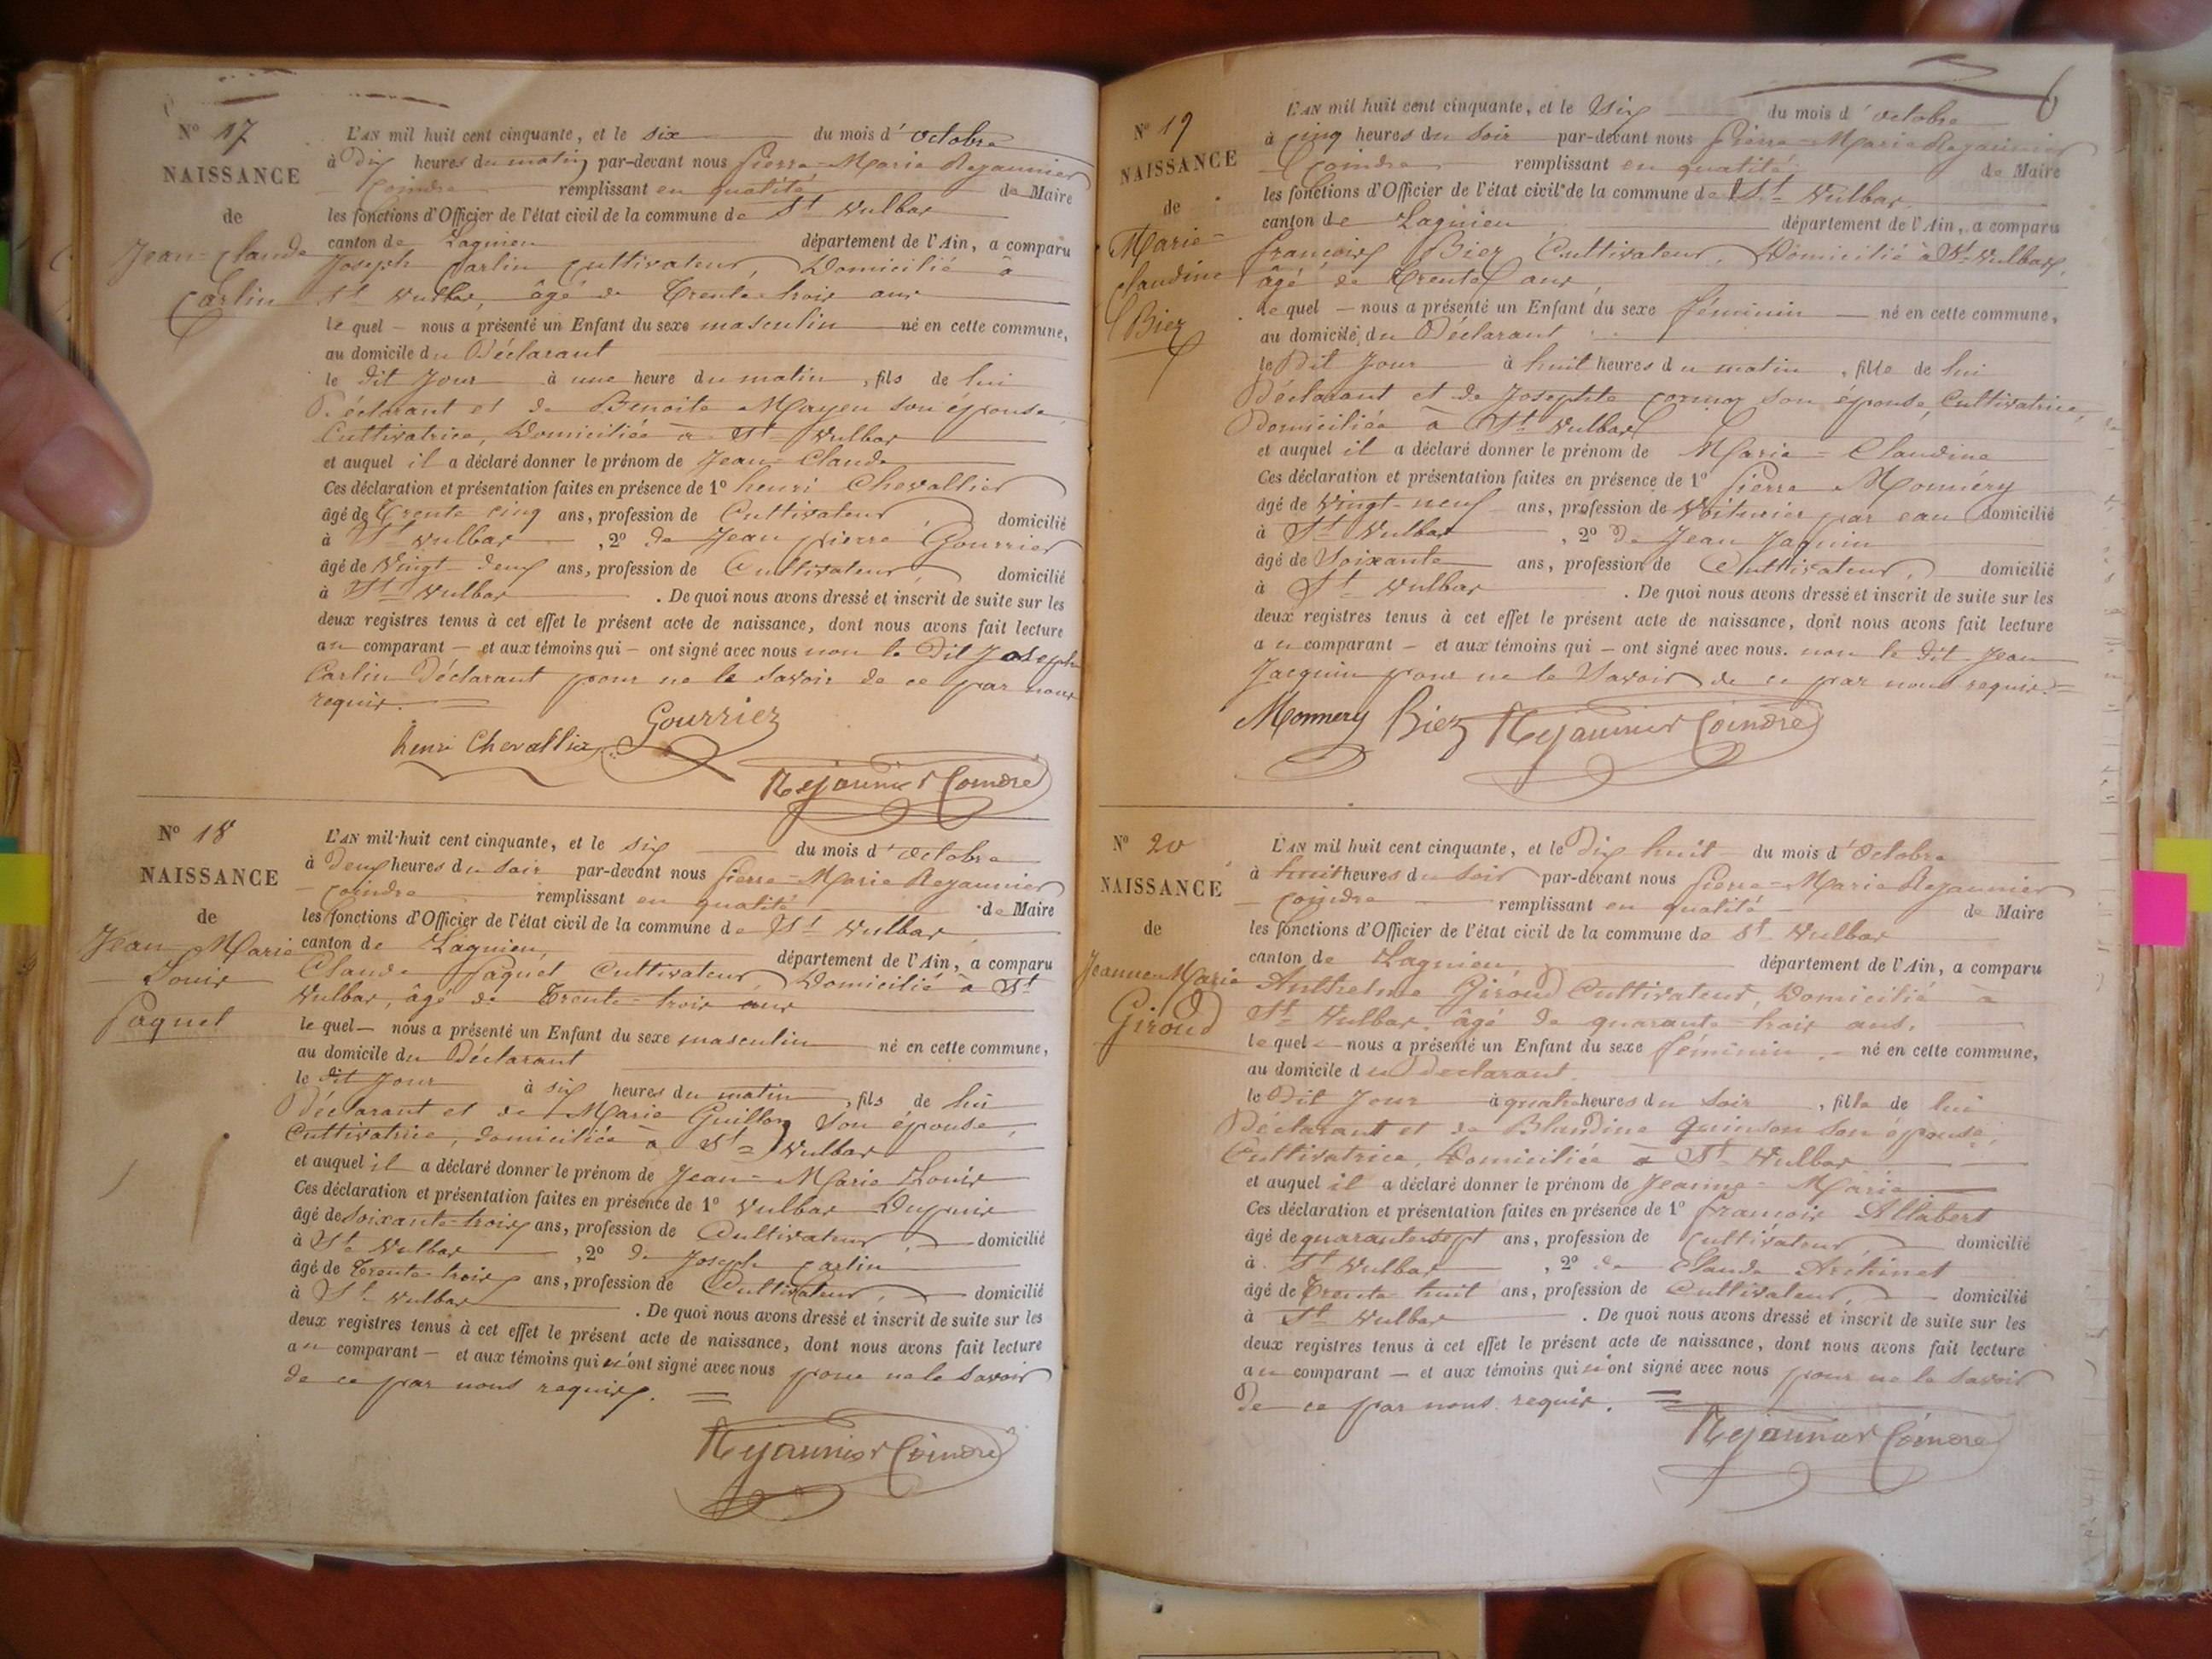 N° 17
NAISSANCE
de
Jean-Claude
Carlin
L'AN mil huit cent cinquante, et le six du mois d'octobre
à Dix heures du matin, par-devant nous Pierre-Marie Rejaunier
Coindre remplissant en qualité de Maire
les fonctions d'Officier de l'état civil de la commune de St Vulbas
canton de Lagnieu département de l'Ain, a comparu
Joseph Carlin Cultivateur, Domicilié à
St Vulbas, âgé de Trente-trois ans
lequel - nous a présenté un Enfant du sexe masculin né en cette commune,
au domicile du Déclarant
le dit Jour à une heure du matin, fils de lui
Déclarant et de Benoite Mayeu son épouse,
Cultivatrice, Domiciliée à St Vulbas
et auquel il a déclaré donner le prénom de Jean-Claude
Ces déclaration et présentation faites en présence de 1° henri Chevallier
âgé de Trente cinq ans, profession de Cultivateur, domicilié
à St Vulbas, 2° de Jean pierre Gourrier
âgé de Vingt-deux ans, profession de Cultivateur, domicilié
à St Vulbas. De quoi nous avons dressé et inscrit de suite sur les
deux registres tenus à cet effet le présent acte de naissance, dont nous avons fait lecture
au comparant - et aux témoins qui - ont signé avec nous non le Dit Joseph
Carlin Déclarant pour ne le Savoir de ce par nous
requis. =
henri Chevallier Gourriez
Rejaunier Coindre
N° 18
NAISSANCE
de
Jean Marie
Louis
Paquet
L'AN mil huit cent cinquante, et le six du mois d'octobre
à Deux heures du Soir par-devant nous Pierre-Marie Rejaunier
- Coindre remplissant en qualité de Maire
les fonctions d'Officier de l'état civil de la commune de St Vulbas
canton de Lagnieu, département de l'Ain, a comparu
Claude Paquet Cultivateur, Domicilié à St
Vulbas, âgé de Trente-trois ans
lequel - nous a présenté un Enfant du sexe masculin né en cette commune,
au domicile du Déclarant
le dit Jour à six heures du matin, fils de lui
Déclarant et de Marie Guillon Son épouse,
Cultivatrice, domiciliée à St Vulbas
et auquel il a déclaré donner le prénom de Jean-Marie Louis
Ces déclaration et présentation faites en présence de 1° Vulbas Dupuis
âgé de soixante-trois ans, profession de Cultivateur, domicilié
à St Vulbas, 2° de Joseph Carlin
âgé de Trente-trois ans, profession de Cultivateur, domicilié
à St Vulbas. De quoi nous avons dressé et inscrit de suite sur les
deux registres tenus à cet effet le présent acte de naissance, dont nous avons fait lecture
au comparant - et aux témoins qui n'ont signé avec nous pour ne le Savoir
de ce par nous requis. =
Rejaunier Coindre
6
N° 19
NAISSANCE
de
Marie-
Claudine
Biez
L'AN mil huit cent cinquante, et le Six du mois d'octobre
à cinq heures du Soir par-devant nous Pierre-Marie Rejaunier
- Coindre remplissant en qualité de Maire
les fonctions d'Officier de l'état civil de la commune de St Vulbas
canton de Lagnieu département de l'Ain, a comparu
françois Biez Cultivateur, Domicilié à St Vulbas,
âgé de Trente ans
lequel - nous a présenté un Enfant du sexe féminin - né en cette commune,
au domicile du Déclarant
le Dit Jour à huit heures du matin, fille de lui
Déclarant et de Josephte son épouse, Cultivatrice,
Domiciliée à St Vulbas
et auquel il a déclaré donner le prénom de Marie-Claudine
Ces déclaration et présentation faites en présence de 1° Pierre Monnéry
âgé de Vingt-neuf ans, profession de Voiturier par eau domicilié
à St Vulbas, 2° de Jean Jaquin
âgé de Soixante ans, profession de Cultivateur, domicilié
à St Vulbas. De quoi nous avons dressé et inscrit de suite sur les
deux registres tenus à cet effet le présent acte de naissance, dont nous avons fait lecture
au comparant - et aux témoins qui - ont signé avec nous. non le dit Jean
Jacquin pour ne le Savoir de ce par nous requis. =
Monnery Biez Rejaunier Coindre
N° 20
NAISSANCE
de
Jeanne Marie
Giroud
L'AN mil huit cent cinquante, et le Dix huit du mois d'Octobre
à huit heures du Soir par-devant nous Pierre-Marie Rejaunier
- Coindre remplissant en qualité de Maire
les fonctions d'Officier de l'état civil de la commune de St Vulbas
canton de Lagnieu, département de l'Ain, a comparu
Anthelme Giroud Cultivateur, Domicilié à
St Vulbas, âgé de quarante-trois ans,
lequel - nous a présenté un Enfant du sexe féminin, - né en cette commune,
au domicile du Declarant
le Dit Jour à quatre heures du Soir, fille de lui
Déclarant et de Blandine Quinson Son épouse,
Cultivatrice, Domiciliée à St Vulbas
et auquel il a déclaré donner le prénom de Jeanne-Marie
Ces déclaration et présentation faites en présence de 1° françois Allabert
âgé de quarante sept ans, profession de Cultivateur, domicilié
à St Vulbas, 2° de Claude Archinet
âgé de Trente huit ans, profession de Cultivateur, domicilié
à St Vulbas. De quoi nous avons dressé et inscrit de suite sur les
deux registres tenus à cet effet le présent acte de naissance, dont nous avons fait lecture
au comparant - et aux témoins qui n'ont signé avec nous pour ne le Savoir
De ce par nous requis. =
Rejaunier Coindre